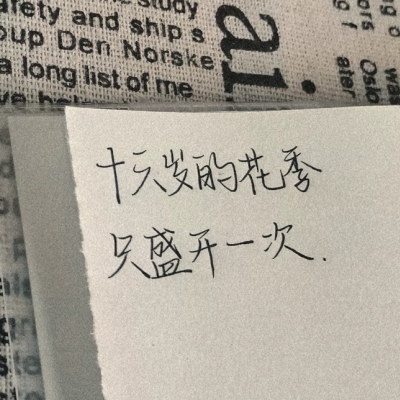 study
fety and ship s
oup Den Norske
a long list of me
al
Oslo
ater
十六岁的花季
只盛开一次.